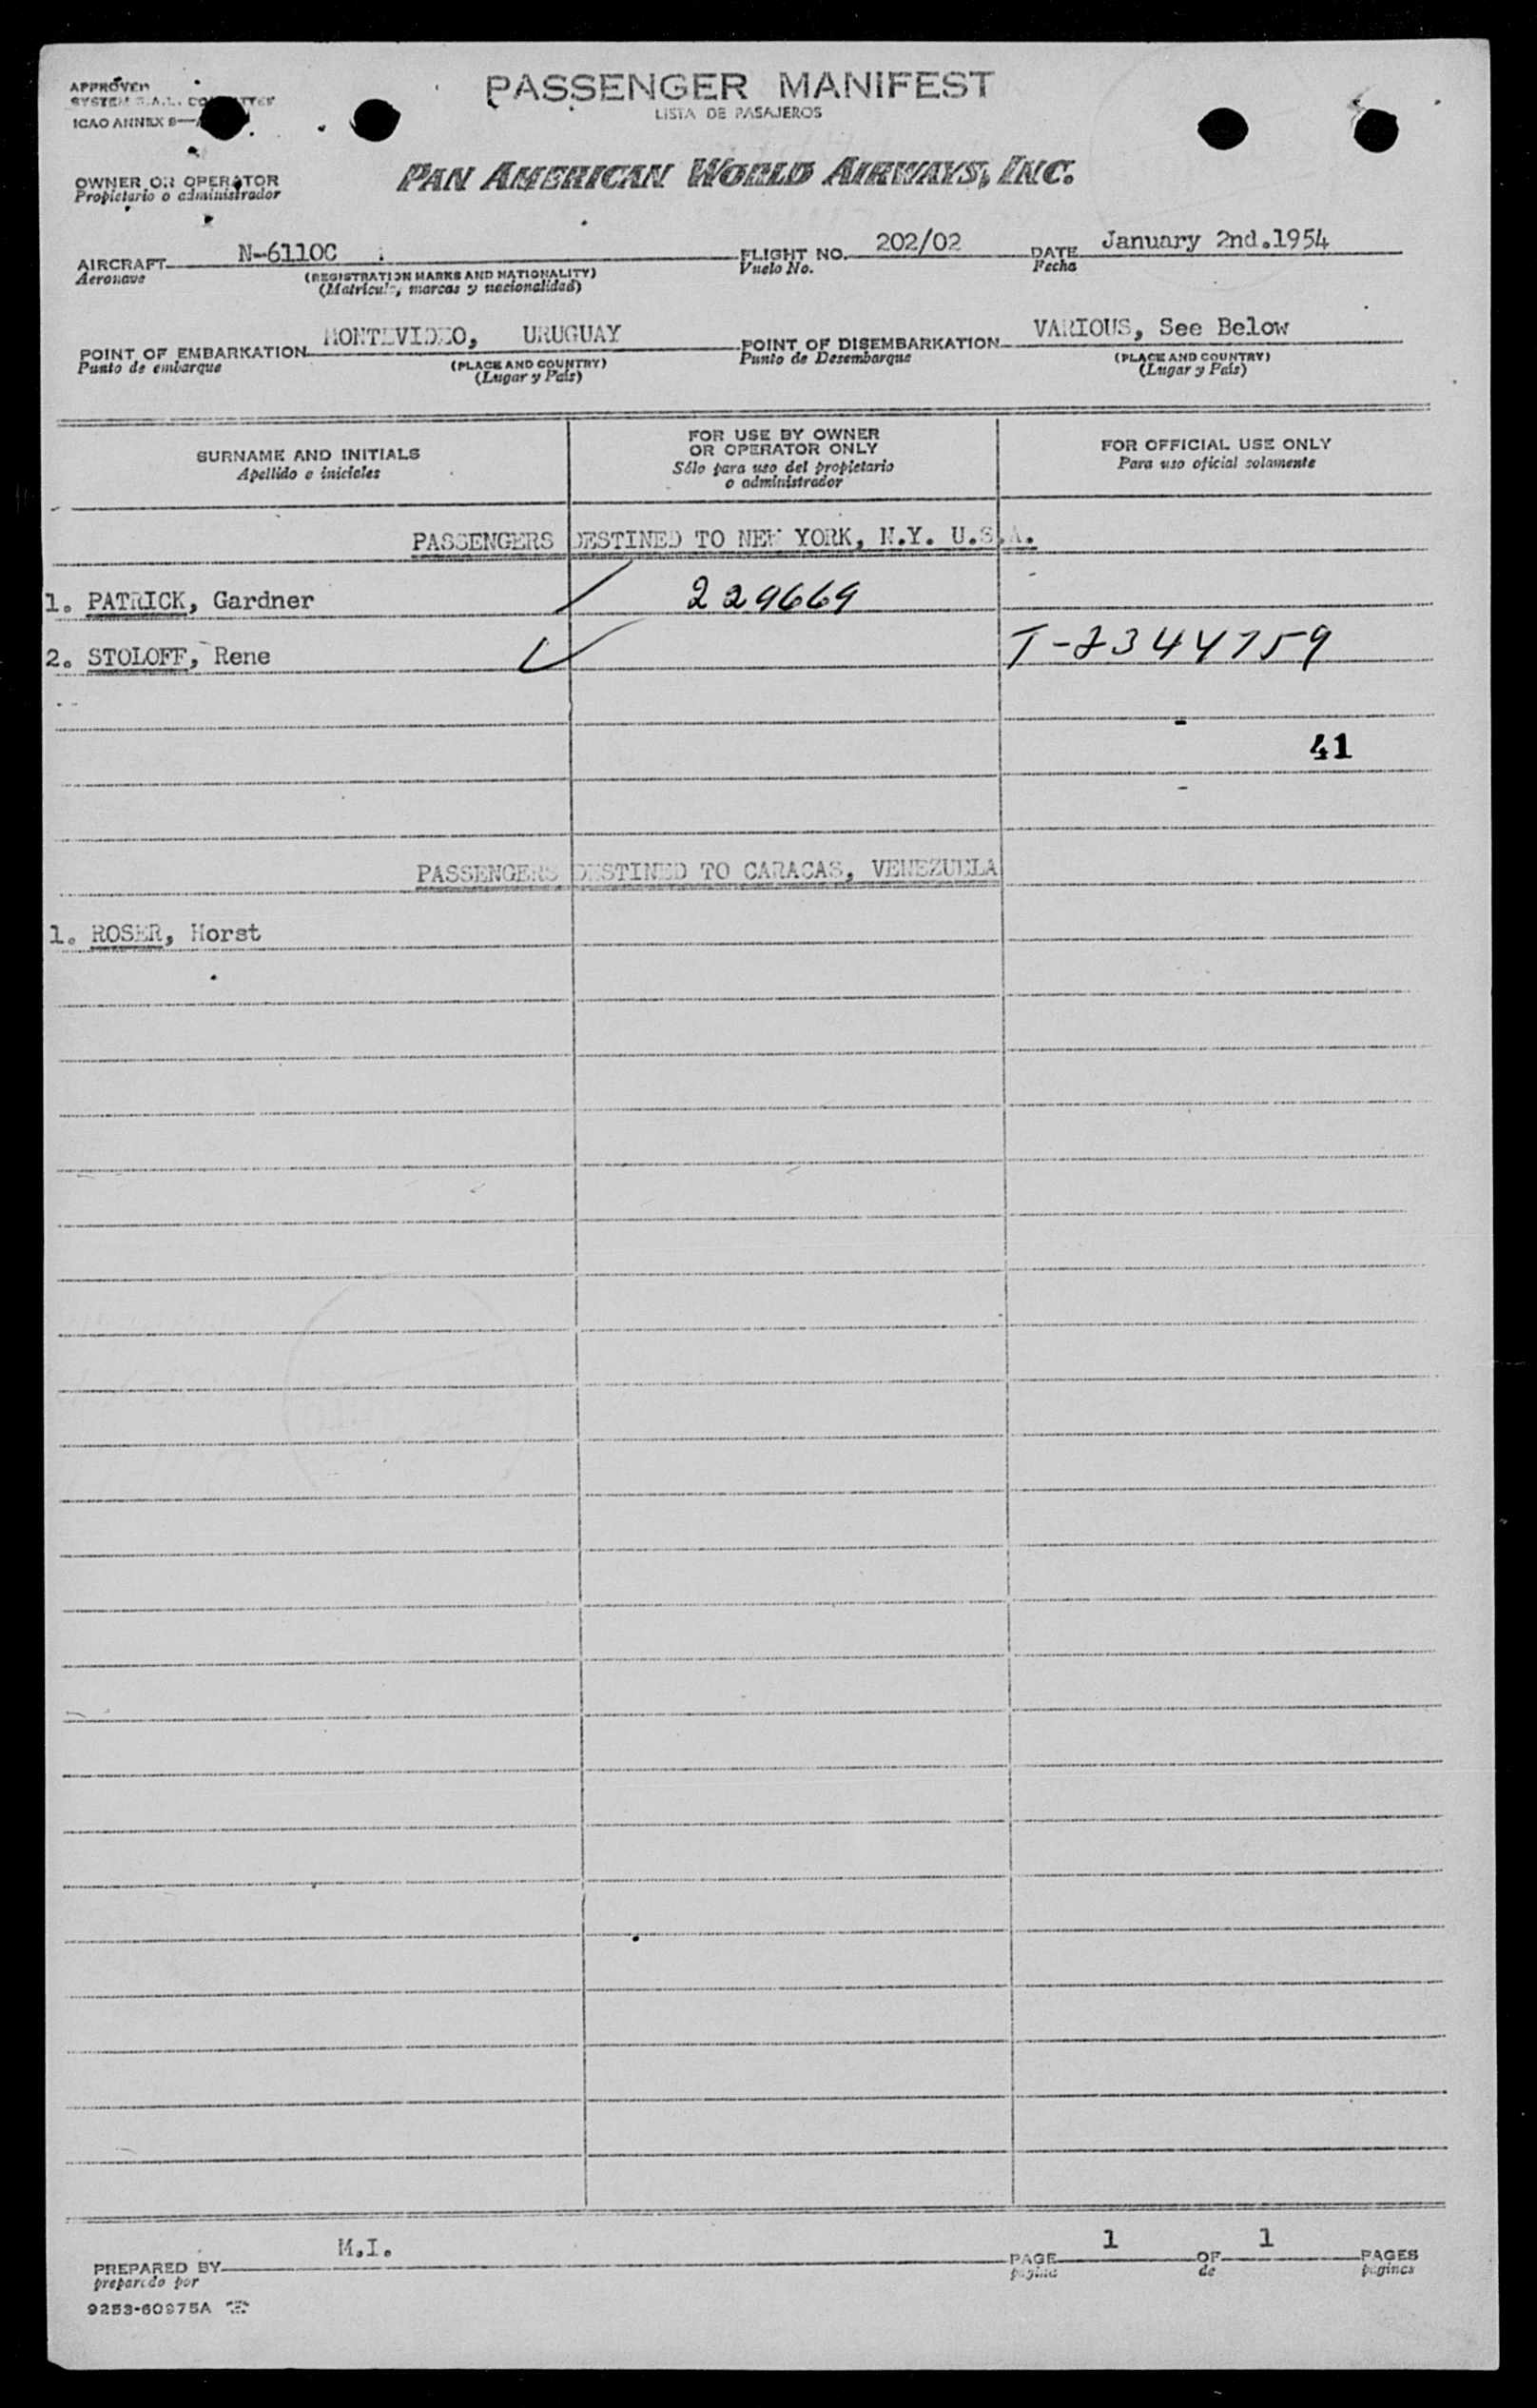 PASSENGER MANIFEST
LISTA DE PASAJEROS
APPROVED
SYSTEM
ICAO ANNEX 9—
PAN AMERICAN WORLD AIRWAYS, INC.
OWNER OR OPERATOR
Propietario o administrador
AIRCRAFT N-6110C FLIGHT NO. 202/02 DATE January 2nd.1954
Aeronave (REGISTRATION MARKS AND NATIONALITY) Vuelo No. Fecha
(Matricula, marcas y nacionalidad)
POINT OF EMBARKATION MONTEVIDEO, URUGUAY POINT OF DISEMBARKATION VARIOUS, See Below
Punto de embarque (PLACE AND COUNTRY) Punto de Desembarque (PLACE AND COUNTRY)
(Lugar y País) (Lugar y País)
SURNAME AND INITIALS
Apellido e iniciales
FOR USE BY OWNER
OR OPERATOR ONLY
Sólo para uso del propietario
o administrador
FOR OFFICIAL USE ONLY
Para uso oficial solamente
PASSENGERS DESTINED TO NEW YORK, N.Y. U.S.A.
1. PATRICK, Gardner 229669
2. STOLOFF, Rene T-2344759
41
PASSENGERS DESTINED TO CARACAS, VENEZUELA
1. ROSER, Horst
PREPARED BY M.I. PAGE 1 OF 1 PAGES
preparado por página de páginas
9253-60975A